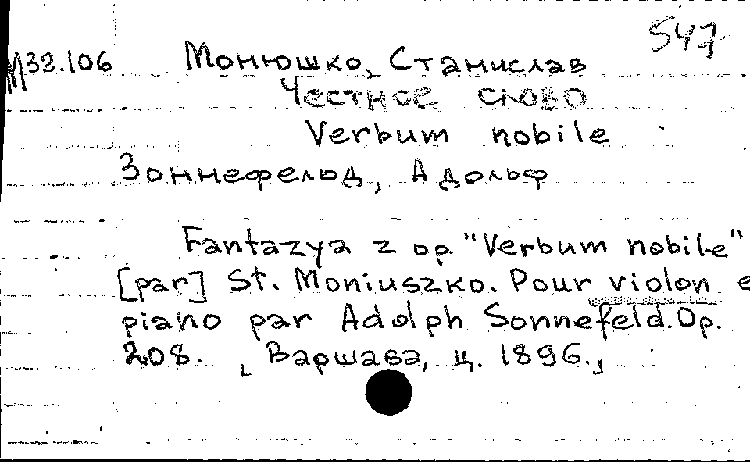 547
М32.106 Монюшко, Станислав
Честное слово
Verbum nobile
Зоннефельд, Адольф
Fantazya z op. "Verbum nobile"
[par] St. Moniuszko. Pour violon e
piano par Adolph Sonnefeld. Op.
208. [Варшава, ц. 1896.]